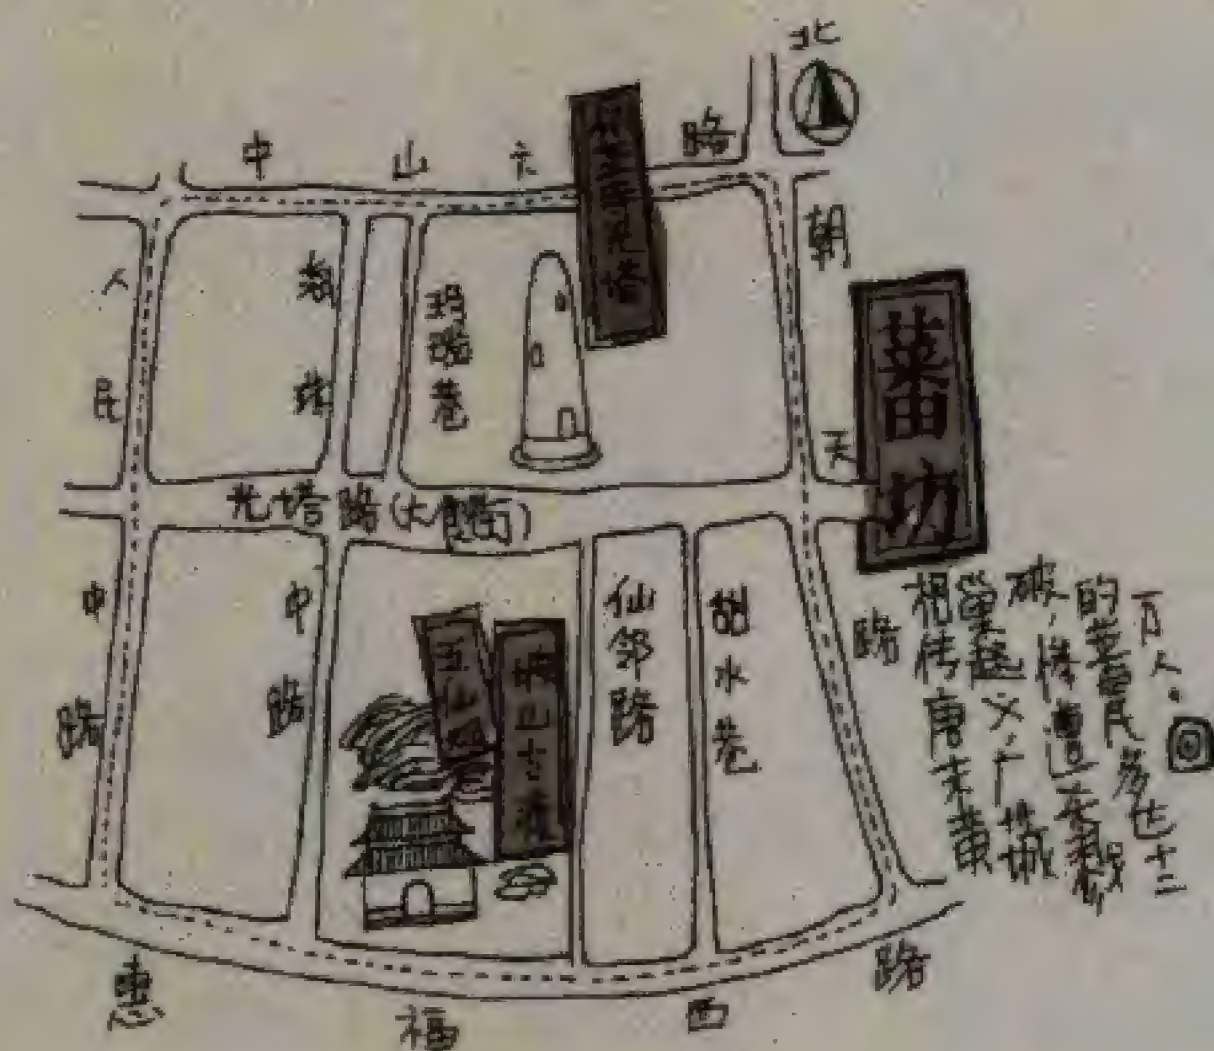 北
中山六路
怀圣寺光塔
朝天路
人民中路
海珠中路
玛瑙巷
蕃坊
光塔路(大食街)
仙邻路
甜水巷
五仙观
坡山古渡
相传唐末黄
巢起义,广城
破,惨遭杀戮
的蕃民多达十二
万人。
惠福西路